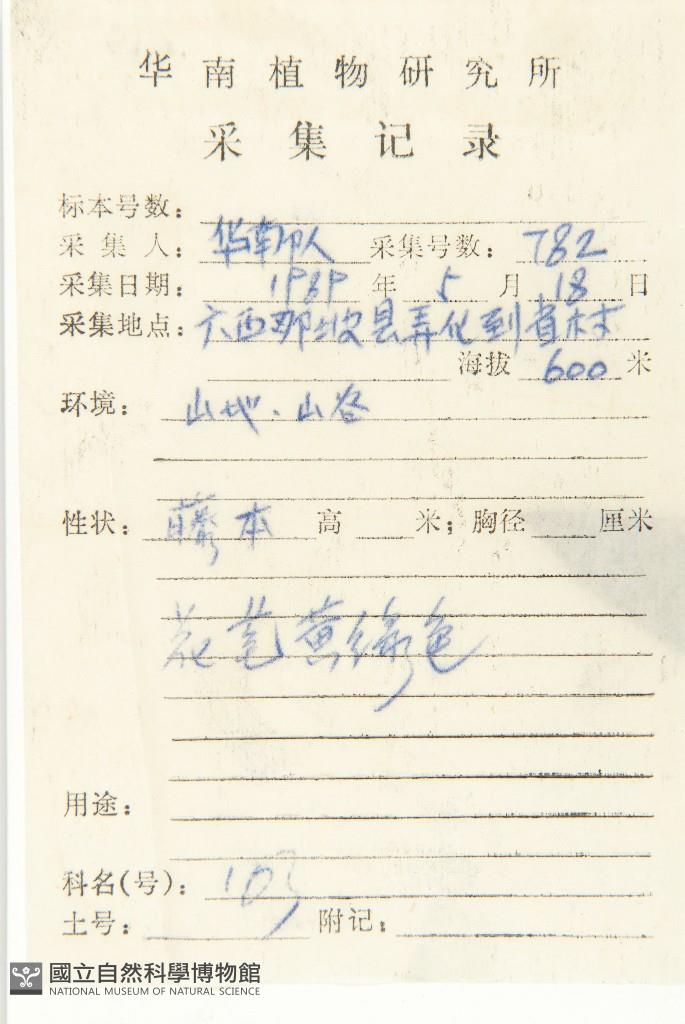 华南植物研究所
采集记录
标本号数：
采集人： 华南队 采集号数： 782
采集日期： 1989 年 5 月 18 日
采集地点： 广西那坡县弄化到省村
海拔 600 米
环境： 山地、山谷
性状： 藤本 高 米；胸径 厘米
花苞黄绿色
用途：
科名(号)： 103
土号： 附记：
國立自然科學博物館
NATIONAL MUSEUM OF NATURAL SCIENCE